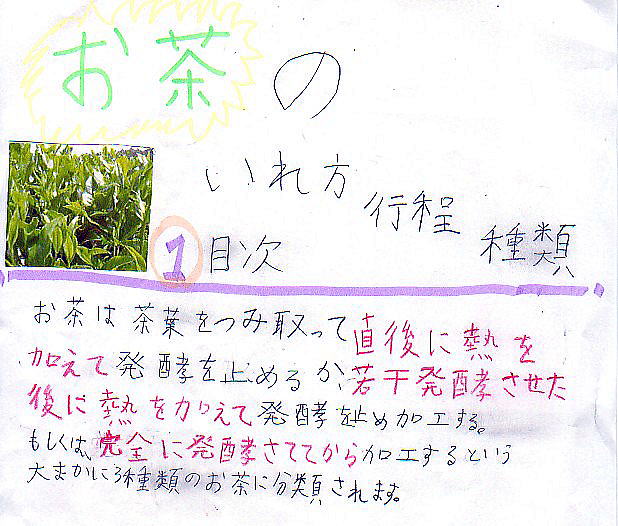 お茶の
いれ方 行程 種類
1 目次
お茶は茶葉をつみ取って直後に熱を
加えて発酵を止めるか若干発酵させた
後に熱を加えて発酵を止め加工する。
もしくは、完全に発酵さててから加工するという
大まかに3種類のお茶に分類されます。